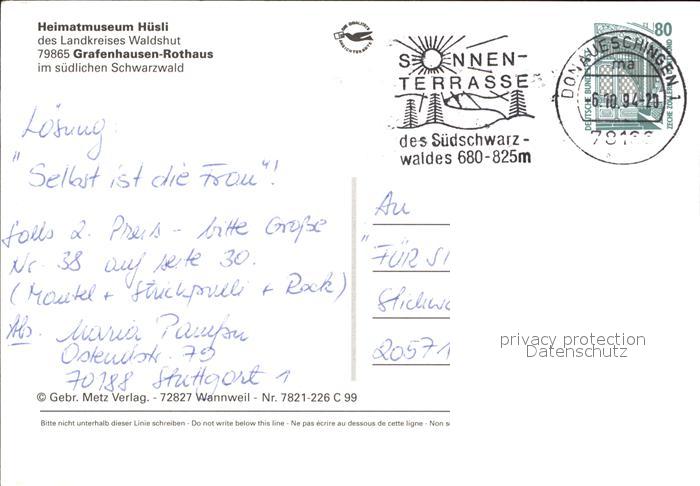 Heimatmuseum Hüsli
des Landkreises Waldshut
79865 Grafenhausen-Rothaus
im südlichen Schwarzwald
SONNEN-
TERRASSE
des Südschwarz-
waldes 680-825m
DONAUESCHINGEN 1
ma
-6.10.94-20
80
DEUTSCHE BUND
ZECHE ZOLLERN
Lösung:
"Selbst ist die Frau"!
falls 2. Preis - bitte Größe
Nr. 38 auf Seite 30.
(Mantel + Strickpulli + Rock)
Abs. Maria
Ostendstr. 79
70188 Stuttgart 1
An
"FÜR SI
Stichwo
20571
privacy protection
Datenschutz
© Gebr. Metz Verlag. - 72827 Wannweil - Nr. 7821-226 C 99
Bitte nicht unterhalb dieser Linie schreiben - Do not write below this line - Ne pas écrire au dessous de cette ligne - Non s